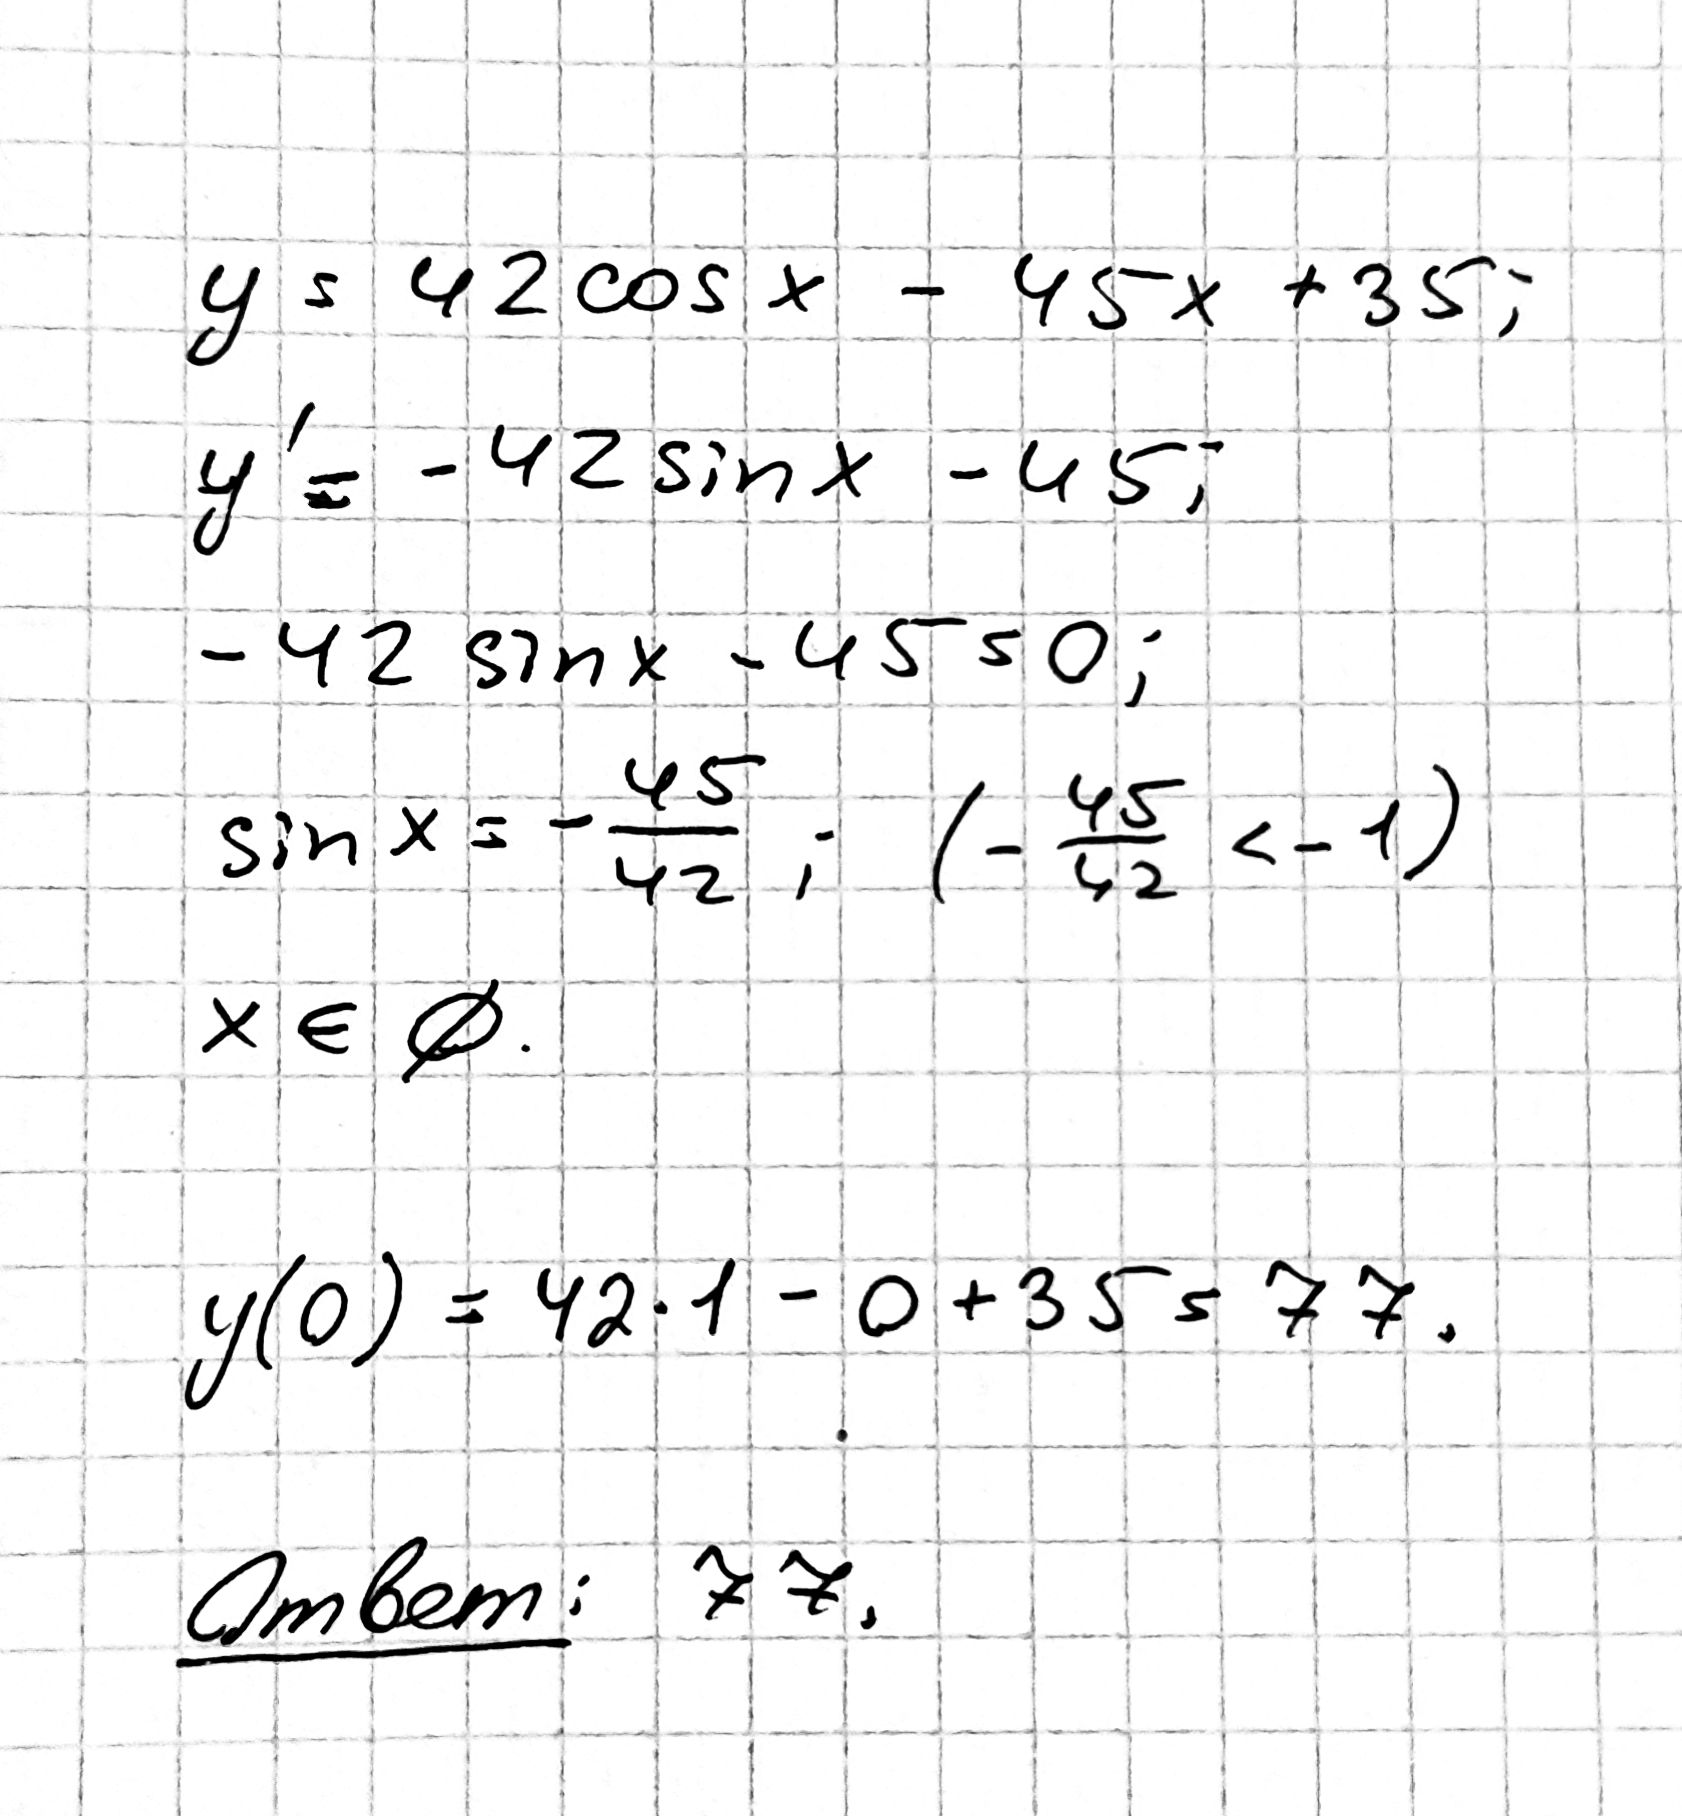 y = 42cosx - 45x + 35;
y' = -42sinx - 45;
-42sinx - 45 = 0;
sinx = -45/42; (-45/42 < -1)
x ∈ ∅.
y(0) = 42·1 - 0 + 35 = 77.
Ответ: 77.